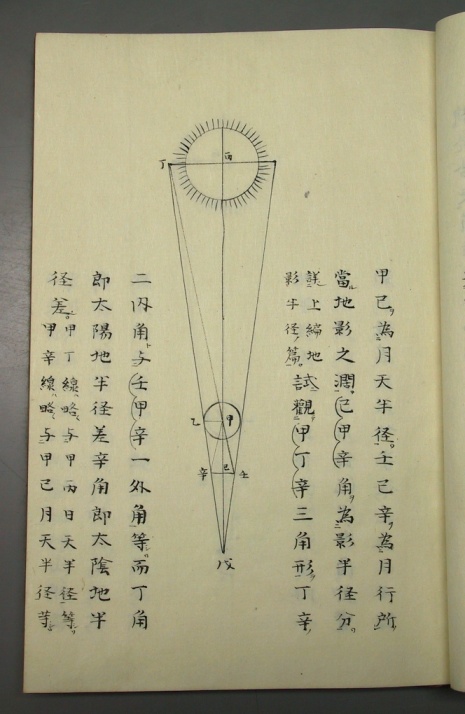 甲己為月天半径壬己辛為月行所
當地影之濶己甲辛角為影半径分
詳上編地
影半径篇試觀甲丁辛三角形丁辛
丁
丙
乙
甲
辛
己
壬
戊
二内角与壬甲辛一外角等而丁角
即太陽地半径差辛角即太陰地半
径差甲丁線略与甲丙日天半径等
甲辛線略与甲己月天半径等